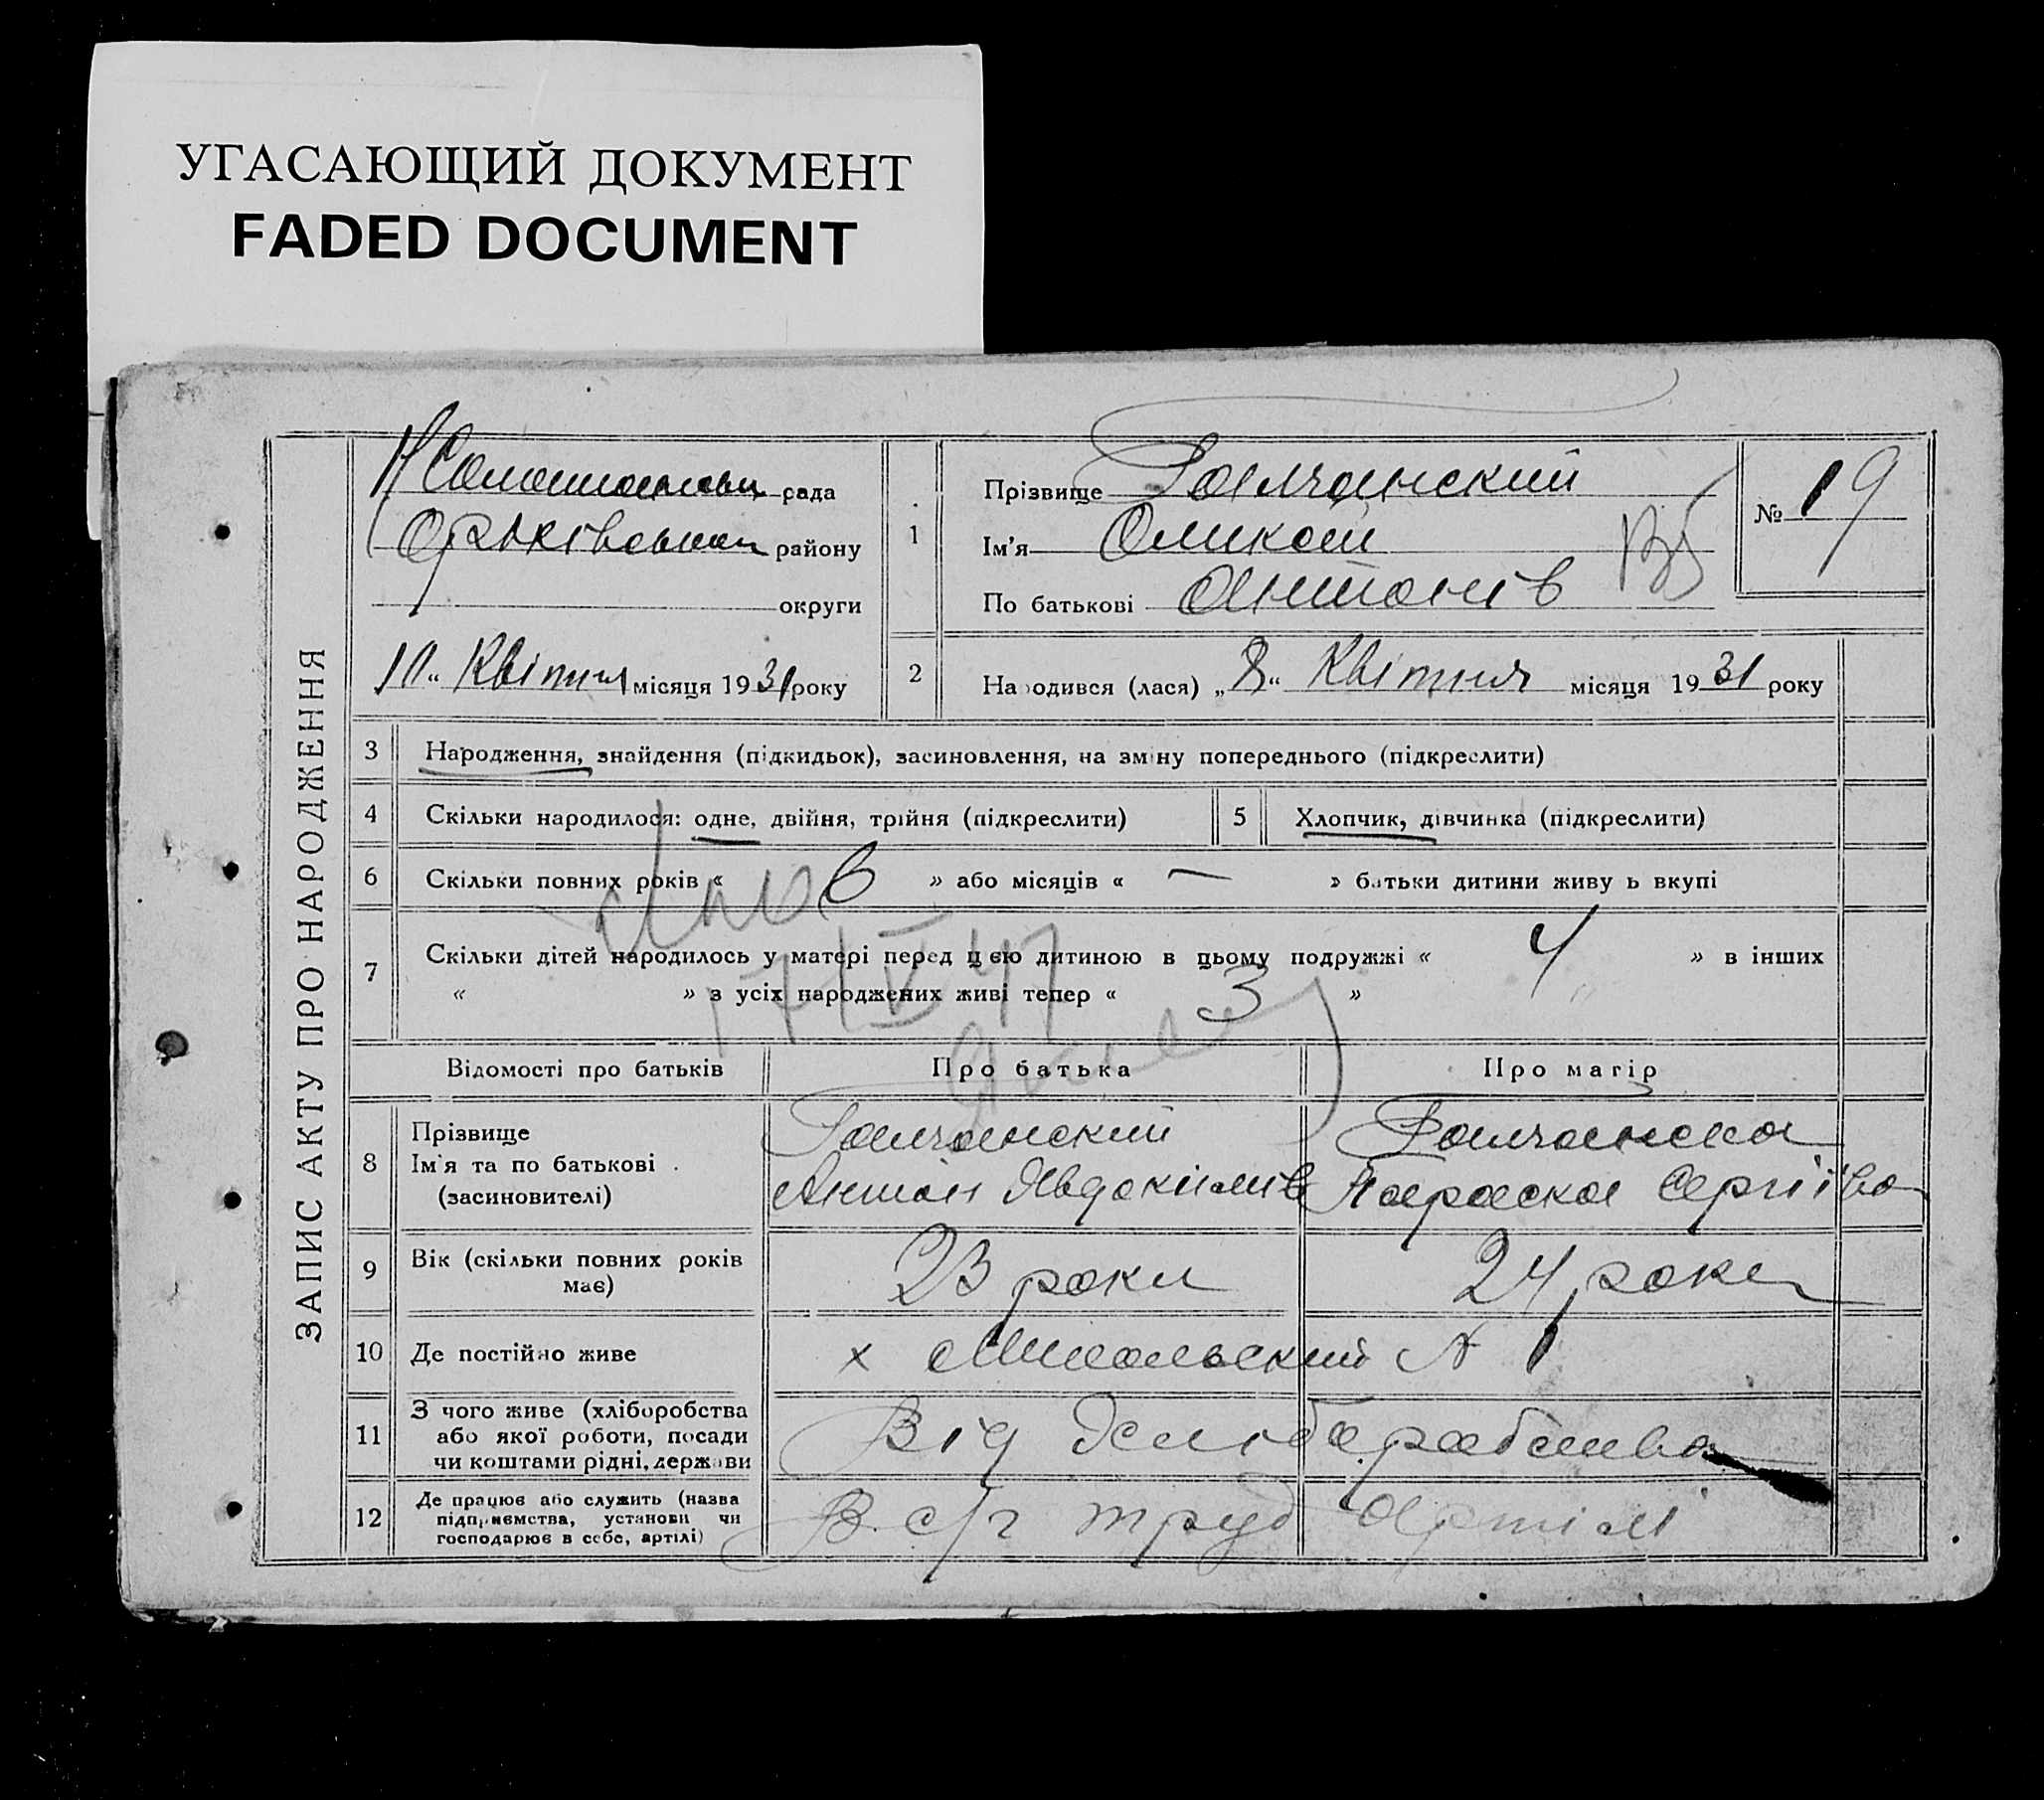 УГАСАЮЩИЙ ДОКУМЕНТ
FADED DOCUMENT
ЗАПИС АКТУ ПРО НАРОДЖЕННЯ
рада
району
округи
10 " Квітня місяця 1931 року
1
Прізвище Галчанский
Ім'я
По батькові Антонів
№ 19
2
Народився (лася) „ 8 " Квітня місяця 1931 року
3 Народження, знайдення (підкидьок), засиновлення, на зміну попереднього (підкреслити)
4 Скільки народилося: одне, двійня, трійня (підкреслити)
5 Хлопчик, дівчинка (підкреслити)
6 Скільки повних років « 6 » або місяців « — » батьки дитини живуть вкупі
7 Скільки дітей народилось у матері перед цією дитиною в цьому подружжі « 4 » в інших
« » з усіх народжених живі тепер « 3 »
17 IV 47
Відомості про батьків Про батька Про матір
8 Прізвище
Ім'я та по батькові
(засиновителі)
Галчанский
Антон Явдокимів
Галчанска
Параска Сергіїва
9 Вік (скільки повних років
має)
23 роки
24 роки
10 Де постійно живе
х № 1
11 З чого живе (хліборобства
або якої роботи, посади
чи коштами рідні, держави
Від хлібаработва
12 Де працює або служить (назва
підприємства, установи чи
господарює в себе, артілі)
В с/г труд Артілі